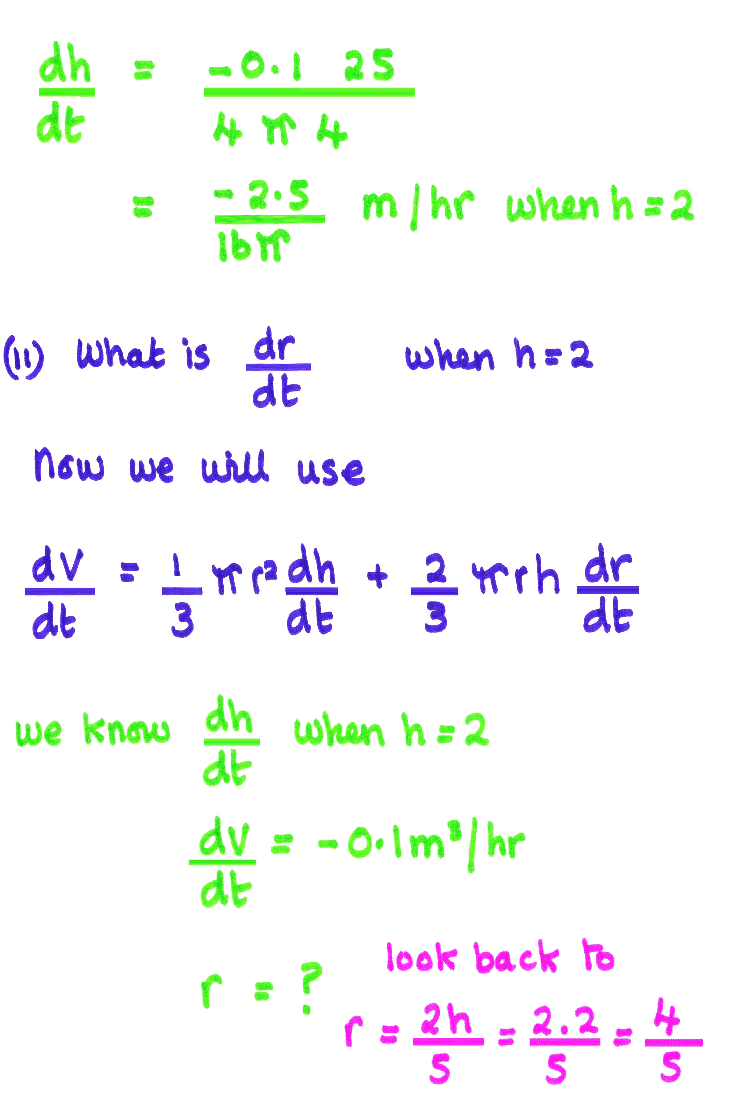 dh/dt = -0.1 25 / 4 π 4
= -2.5/16π m/hr when h=2
(ii) What is dr/dt when h=2
Now we will use
dV/dt = 1/3 πr² dh/dt + 2/3 πrh dr/dt
we know dh/dt when h=2
dV/dt = -0.1m³/hr
r = ?
look back to
r = 2h/5 = 2.2/5 = 4/5